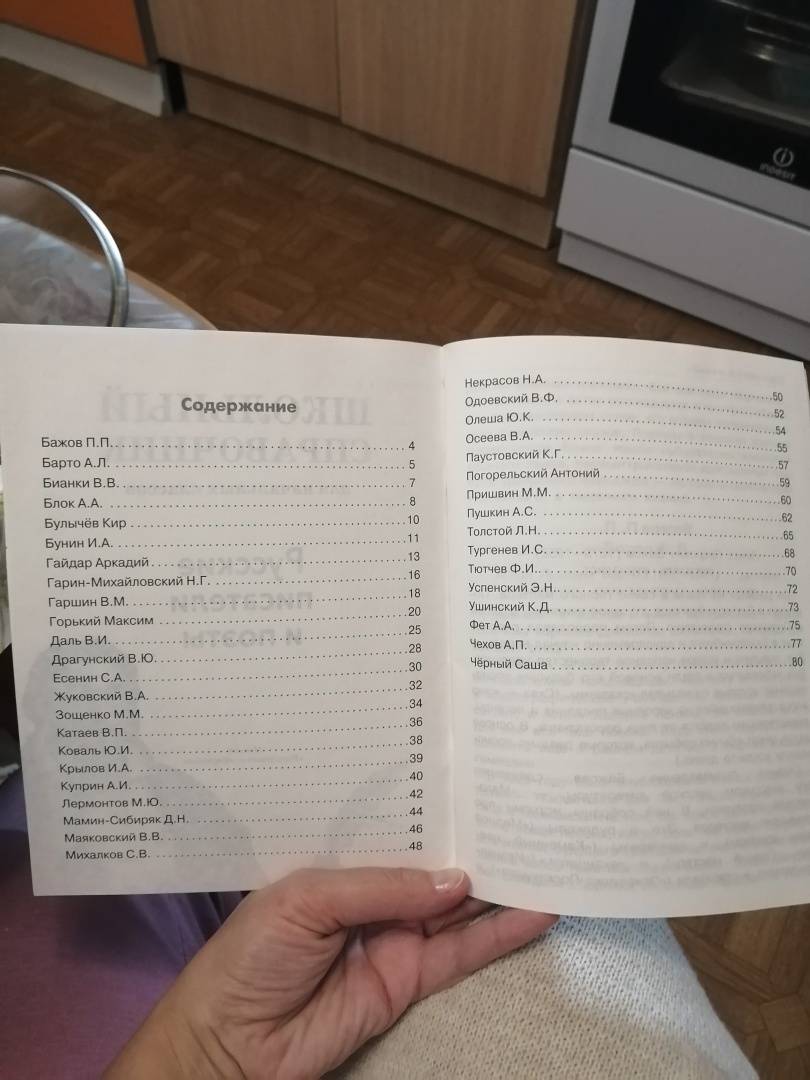 INDESIT
Содержание
Бажов П.П. 4
Барто А.Л. 5
Бианки В.В. 7
Блок А.А. 8
Булычёв Кир 10
Бунин И.А. 11
Гайдар Аркадий 13
Гарин-Михайловский Н.Г. 16
Гаршин В.М. 18
Горький Максим 20
Даль В.И. 25
Драгунский В.Ю. 28
Есенин С.А. 30
Жуковский В.А. 32
Зощенко М.М. 34
Катаев В.П. 36
Коваль Ю.И. 38
Крылов И.А. 39
Куприн А.И. 40
Лермонтов М.Ю. 42
Мамин-Сибиряк Д.Н. 44
Маяковский В.В. 46
Михалков С.В. 48
Некрасов Н.А. 50
Одоевский В.Ф. 52
Олеша Ю.К. 54
Осеева В.А. 55
Паустовский К.Г. 57
Погорельский Антоний 59
Пришвин М.М. 60
Пушкин А.С. 62
Толстой Л.Н. 65
Тургенев И.С. 68
Тютчев Ф.И. 70
Успенский Э.Н. 72
Ушинский К.Д. 73
Фет А.А. 75
Чехов А.П. 77
Чёрный Саша 80
ШКОЛЬНЫЙ
СПРАВОЧНИК
Русские
писатели
и поэты